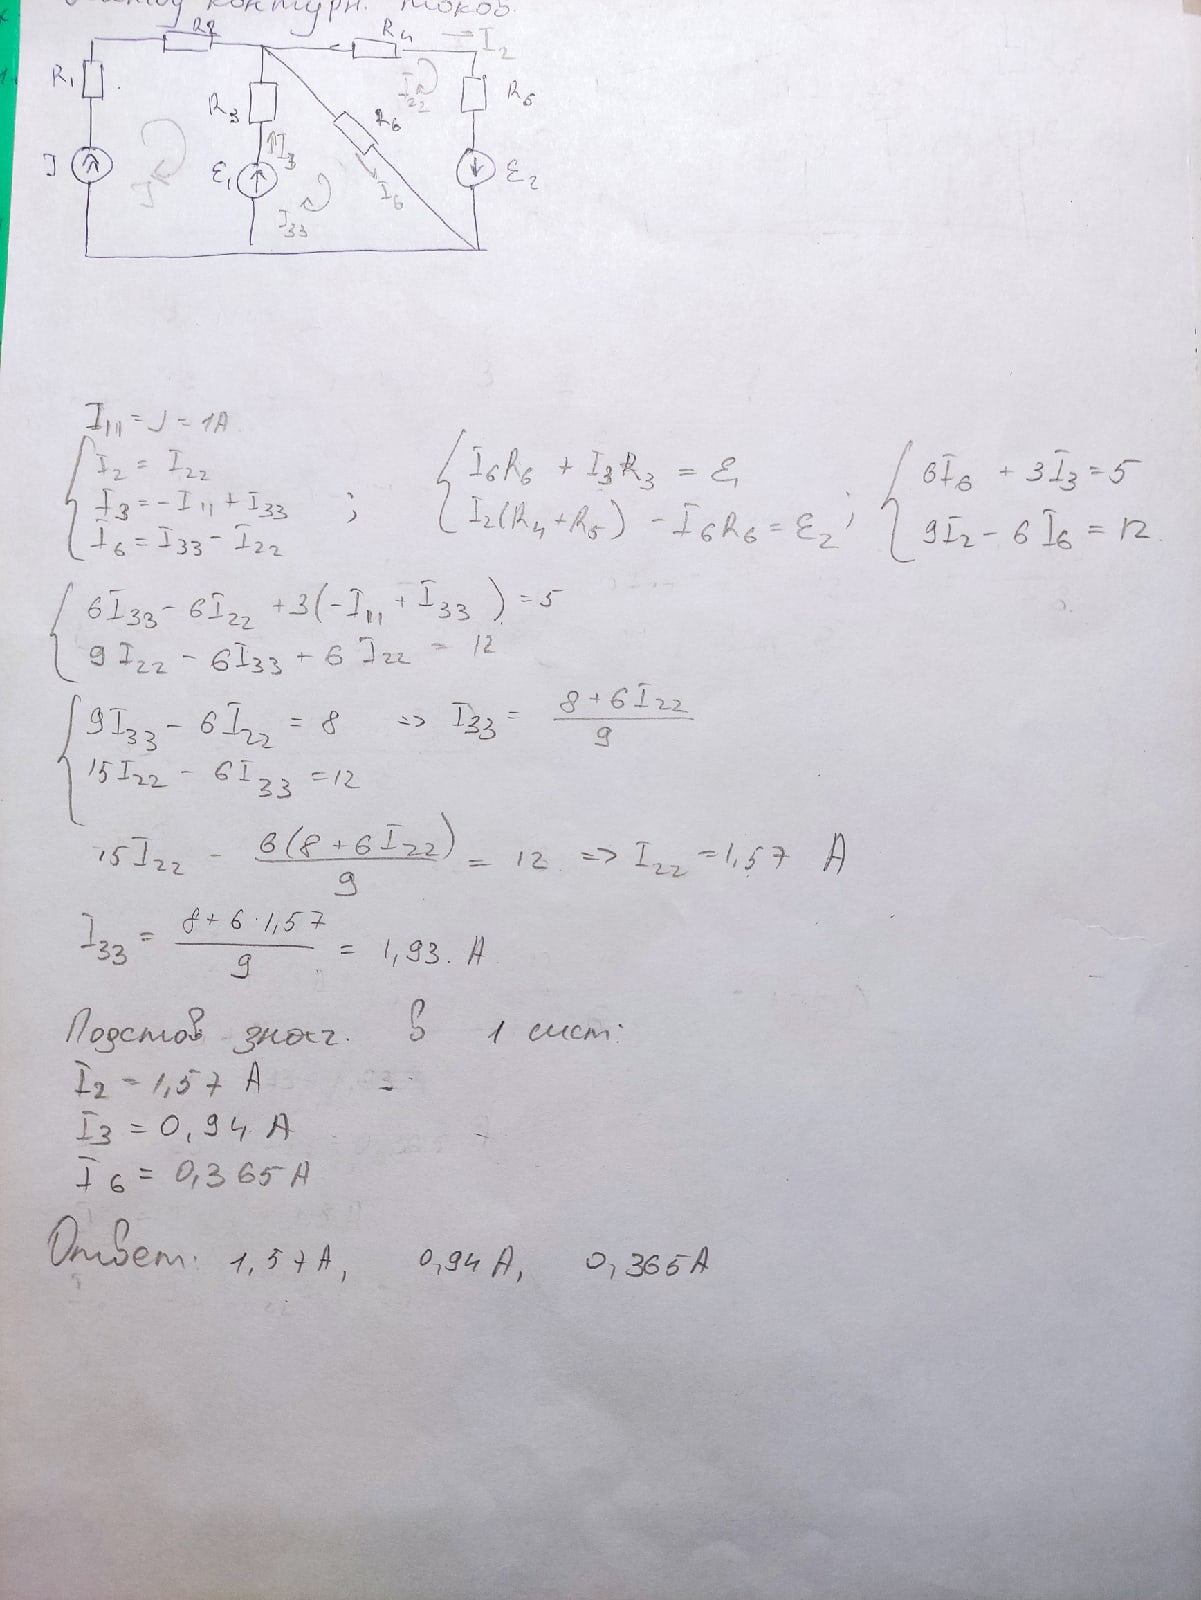 контурн. токов.
R2 R4 I2
R1 R3 R6 I22 R5
J J ε1 I3 I33 I6 ε2
I11 = J = 1A
{ I2 = I22
I3 = -I11 + I33 ;
I6 = I33 - I22
{ I6R6 + I3R3 = ε1
I2(R4+R5) - I6R6 = ε2 ;
{ 6I6 + 3I3 = 5
9I2 - 6I6 = 12
{ 6I33 - 6I22 + 3(-I11 + I33) = 5
9I22 - 6I33 + 6I22 = 12
{ 9I33 - 6I22 = 8 => I33 = (8+6I22)/9
15I22 - 6I33 = 12
15I22 - 6(8+6I22)/9 = 12 => I22 = 1,57 A
I33 = (8+6·1,57)/9 = 1,93. A
Подстав знач. в 1 сист:
I2 = 1,57 A
I3 = 0,94 A
I6 = 0,365 A
Ответ: 1,57A, 0,94A, 0,365A